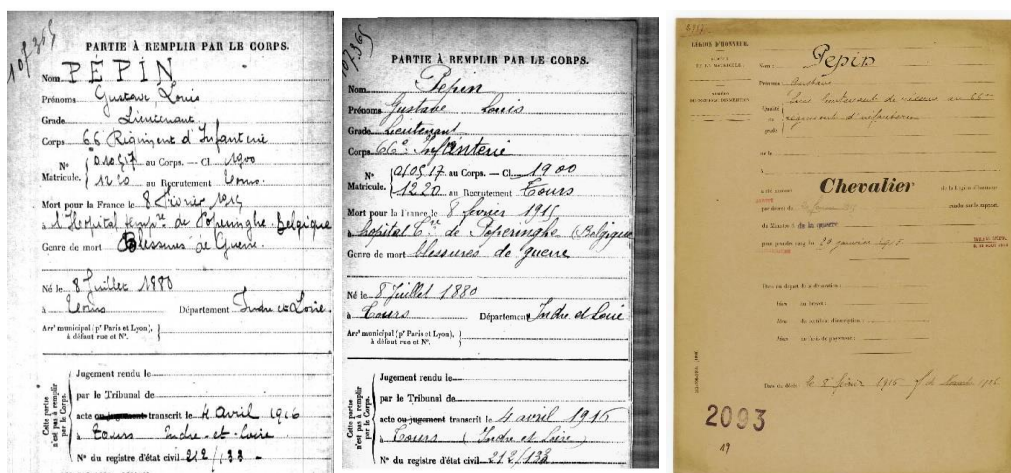 107365
PARTIE À REMPLIR PAR LE CORPS.
Nom PEPIN
Prénoms Gustave, Louis
Grade Lieutenant
Corps 66 Régiment d'Infanterie
N° Matricule. { 010517 au Corps. — Cl 1900
1220 au Recrutement Tours
Mort pour la France le 8 Février 1915
à l'Hopital temp.re de Poperinghe. Belgique
Genre de mort Blessures de Guerre.
Né le 8 Juillet 1880
à Tours Département Indre et Loire.
Arr' municipal (p' Paris et Lyon),
à défaut rue et N°.
Cette partie n'est pas à remplir par le Corps.
Jugement rendu le
par le Tribunal de
acte ou jugement transcrit le 4 avril 1916
à Tours Indre-et-Loire
N° du registre d'état civil 212/133 -
107365
PARTIE À REMPLIR PAR LE CORPS.
Nom Pepin
Prénoms Gustave Louis
Grade Lieutenant
Corps 66e Infanterie
N° Matricule. { 010517 au Corps. — Cl. 1900
1220 au Recrutement Tours
Mort pour la France le 8 fevrier 1915
à hopital de Poperinghe (Belgique
Genre de mort blessures de guerre
Né le 8 Juillet 1880
à Tours Département Indre et Loire
Arr' municipal (p' Paris et Lyon),
à défaut rue et N°.
Cette partie n'est pas à remplir par le Corps.
Jugement rendu le
par le Tribunal de
acte ou jugement transcrit le 4 avril 1916
à Tours (Indre et Loire)
N° du registre d'état civil 212/133
LÉGION D'HONNEUR.
Nom : Pepin
Prénoms : Gustave
Qualité ou grade Sous lieutenant de réserve au 66me
régiment d'infanterie
né le
à
a été nommé Chevalier de la Légion d'honneur
par décret du rendu sur le rapport
du Ministre de la guerre
pour prendre rang du 29 janvier 1915
Date du décès : le 8 février 1915
2093
19